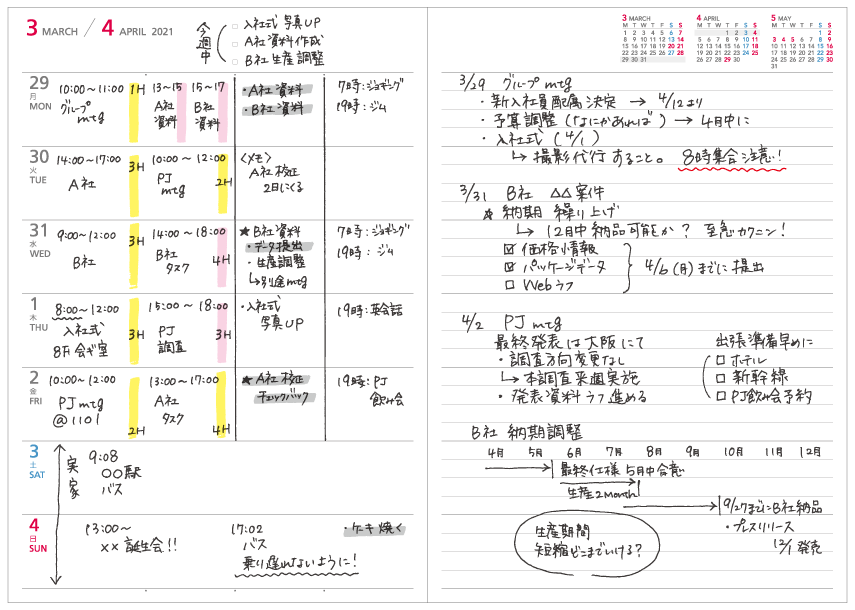 3 MARCH / 4 APRIL 2021
今週中
□ 入社式 写真UP
□ A社資料作成
□ B社生産調整
29 月 MON
10:00～11:00 1H
グループ
mtg
13～15
A社
資料
15～17
B社
資料
・A社 資料
・B社 資料
7時:ジョギング
19時:ジム
30 火 TUE
14:00～17:00 3H
A社
10:00～12:00
PJ
mtg 2H
<メモ>
A社 校正
2日にくる
31 水 WED
9:00～12:00 3H
B社
14:00～18:00
B社
タスク 4H
★B社資料
・データ提出
・生産調整
↳別途mtg
7時:ジョギング
19時:ジム
1 木 THU
8:00～12:00
入社式 3H
8F 会ギ室
15:00～18:00
PJ
調査 3H
・入社式
写真UP
19時:英会話
2 金 FRI
10:00～12:00
PJ mtg
@1101 2H
13:00～17:00
A社
タスク 4H
★A社 校正
チェックバック
19時:PJ
飲み会
3 土 SAT
実家
9:08
○○駅
バス
4 日 SUN
13:00～
××誕生会!!
17:02
バス
乗り遅れないように!
・ケーキ焼く
3 MARCH
M T W T F S S
1 2 3 4 5 6 7
8 9 10 11 12 13 14
15 16 17 18 19 20 21
22 23 24 25 26 27 28
29 30 31
4 APRIL
M T W T F S S
1 2 3 4
5 6 7 8 9 10 11
12 13 14 15 16 17 18
19 20 21 22 23 24 25
26 27 28 29 30
5 MAY
M T W T F S S
1 2
3 4 5 6 7 8 9
10 11 12 13 14 15 16
17 18 19 20 21 22 23
24 25 26 27 28 29 30
31
3/29 グループ mtg
・新入社員配属決定 → 4/12より
・予算調整(なにかあれば) → 4月中に
・入社式 (4/1)
↳ 撮影代行すること。 8時集合注意!
3/31 B社 △△案件
★納期 繰り上げ
↳ 12月中納品可能か? 至急カクニン!
☑ 価格情報
☑ パッケージデータ
□ Webラフ
4/6(月)までに提出
4/2 PJ mtg
最終発表は大阪にて
・調査方向変更なし
↳本調査来週実施
・発表資料ラフ進める
出張準備早めに
□ ホテル
□ 新幹線
□ PJ飲み会予約
B社 納期調整
4月 5月 6月 7月 8月 9月 10月 11月 12月
最終仕様 5月中合意
生産2Month
9/27までにB社納品
・プレスリリース
12/1 発表
生産期間
短縮どこまでいける?